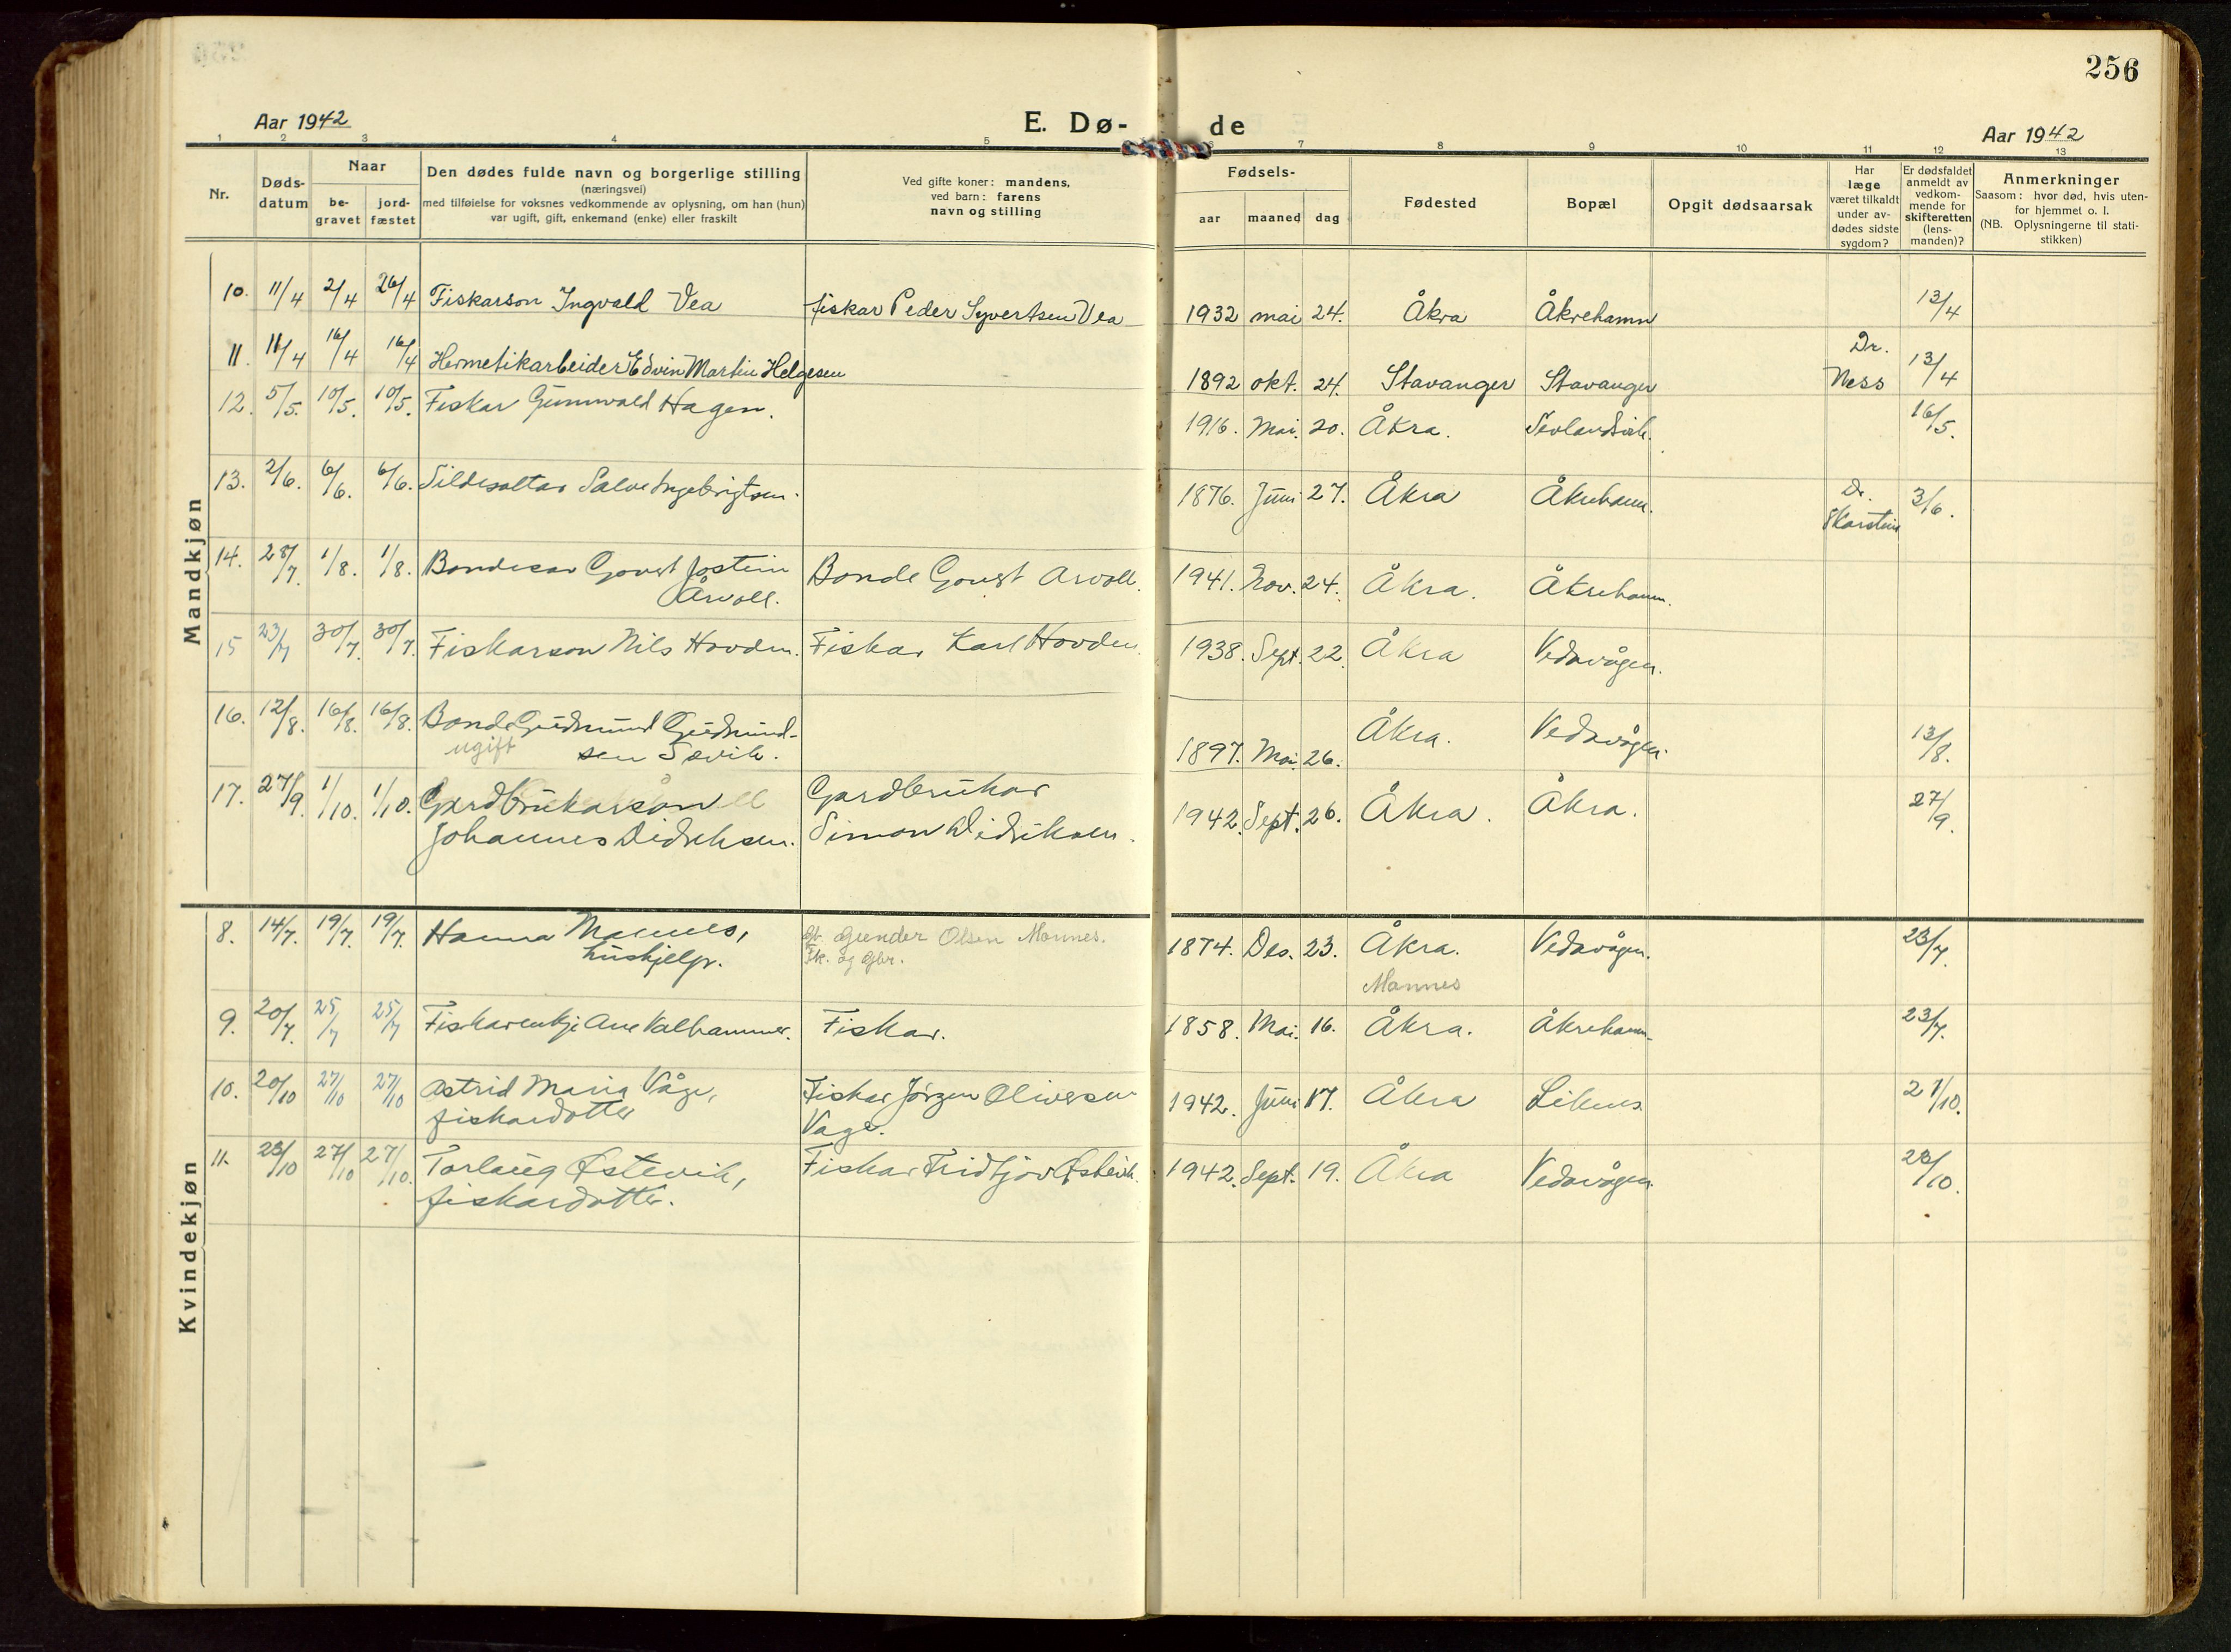 256
Aar 1942
E. Dø-
de
Aar 1942
1 2 3 4 5 6 7 8 9 10 11 12 13
Nr.
Døds-
datum
Naar
be-
gravet
jord-
fæstet
Den dødes fulde navn og borgerlige stilling
(næringsvei)
med tilføielse for voksnes vedkommende av oplysning, om han (hun)
var ugift, gift, enkemand (enke) eller fraskilt
Ved gifte koner: mandens,
ved barn: farens
navn og stilling
Fødsels-
aar
maaned
dag
Fødested
Bopæl
Opgit dødsaarsak
Har
læge
været tilkaldt
under av-
dødes sidste
sygdom?
Er dødsfaldet
anmeldt av
vedkom-
mende for
skifteretten
(lens-
manden)?
Anmerkninger
Saasom: hvor død, hvis uten-
for hjemmet o. l.
(NB. Oplysningerne til stati-
stikken)
Mandkjøn
10. 11/4 2/4 26/4 Fiskarson Ingvald Vea fiskar Peder Syvertsen Vea 1932 mai 24. Åkra Åkrehamn 13/4
11. 11/4 16/4 16/4 Hermetikarbeider Edvin Martin Helgesen 1892 okt. 24. Stavanger Stavanger Dr. 13/4
Ness
12. 5/5. 10/5. 10/5. Fiskar Gunnvald Hagen. 1916. Mai. 20. Åkra. Sevlandsvik. 16/5.
13. 2/6. 6/6. 6/6. Sildesaltar Salve Ingebrigtsen. 1876. Juni 27. Åkra Åkrehamn. Dr. 3/6.
Karstein
14. 28/7. 1/8. 1/8. Bondeson Goust Jostein Bonde Goust Årvoll. 1941. Nov. 24. Åkra. Åkrehamn.
Årvoll.
15 23/7 30/7. 30/7. Fiskarson Nils Hovden. Fiskar Karl Hovden. 1938. Sept. 22. Åkra Vedavågen.
16. 12/8. 16/8. 16/8. Bonde Gudmund Gudmund- 1897. Mai. 26. Åkra. Vedavågen. 13/8.
ugift sen Sævik.
17. 27/9. 1/10. 1/10. Gardbrukarson Gardbrukar 1942. Sept. 26. Åkra. Åkra. 27/9.
Johannes Didriksen. Simon Didriksen.
Kvindekjøn
8. 14/7. 19/7. 19/7. Hanna Mannes, Gunder Olsen Mannes. 1874. Des. 23. Åkra. Vedavågen. 23/7.
hushjelp. Fk. og gbr. Mannes
9. 20/7. 25/7 25/7 Fiskarenkje Ane Valhammer. Fiskar. 1858. Mai. 16. Åkra. Åkrehamn. 23/7.
10. 20/10 27/10 27/10 Astrid Maria Våge, Fiskar Jörgen Oliversen 1942. Juni 17. Åkra Liknes 21/10.
fiskardotter Våge.
11. 23/10 27/10 27/10. Torlaug Østevik, Fiskar Fridtjov Østevik. 1942. Sept. 19. Åkra Vedavågen. 28/10.
fiskardotter.